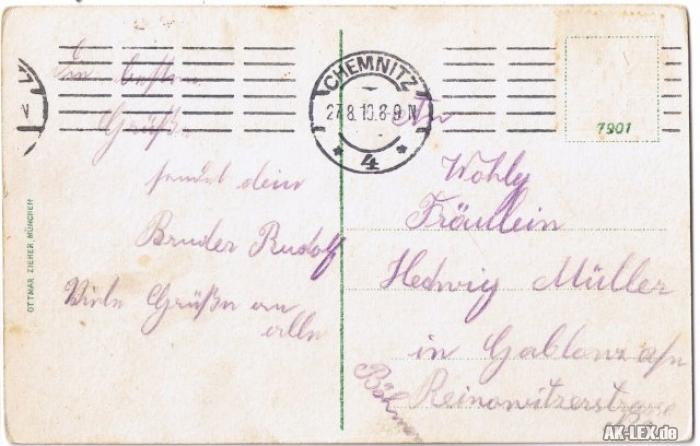 Die besten
Grüße
sendet dein
Bruder Rudolf
Viele Grüße an
alle
OTTMAR ZIEHER, MÜNCHEN
CHEMNITZ
27.8.10.8-9N
* 4 *
7901
An
Wohlg
Fräullein
Hedwig Müller
in Gablonz a/n
Reinowitzerstrasse
Böhmen
AK-LEX.de